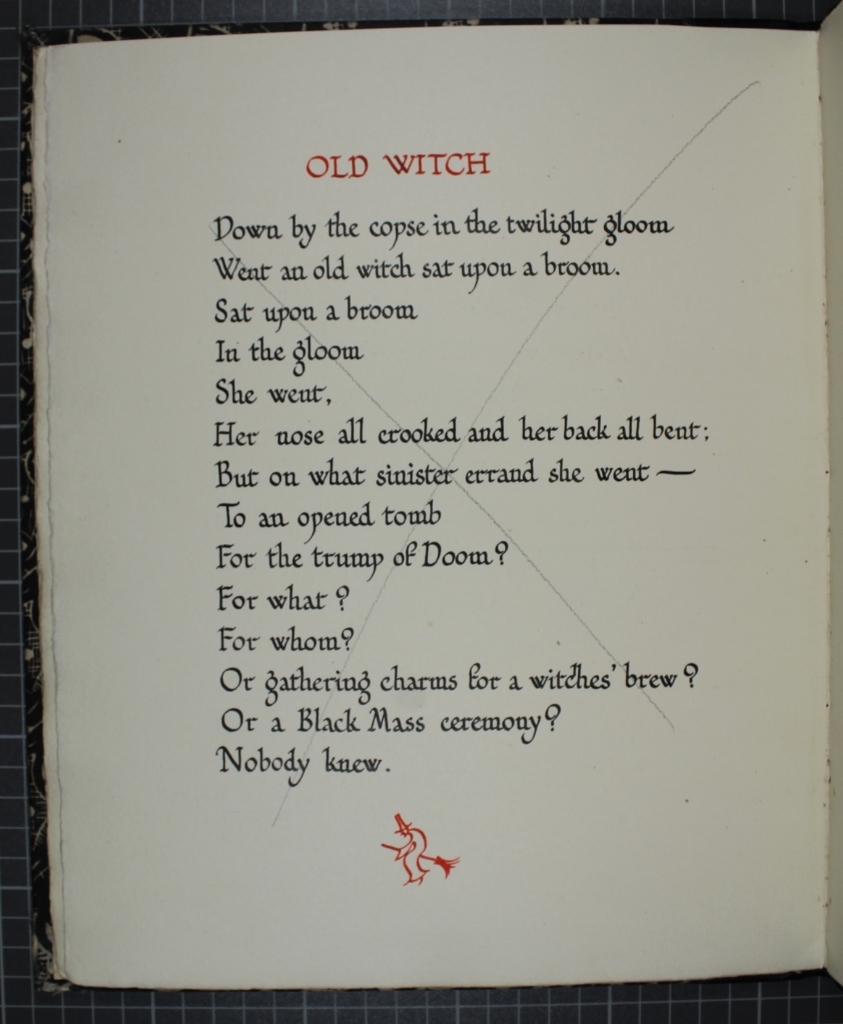 OLD WITCH
Down by the copse in the twilight gloom
Went an old witch sat upon a broom.
Sat upon a broom
In the gloom
She went,
Her nose all crooked and her back all bent;
But on what sinister errand she went —
To an opened tomb
For the trump of Doom?
For what?
For whom?
Or gathering charms for a witches' brew?
Or a Black Mass ceremony?
Nobody knew.